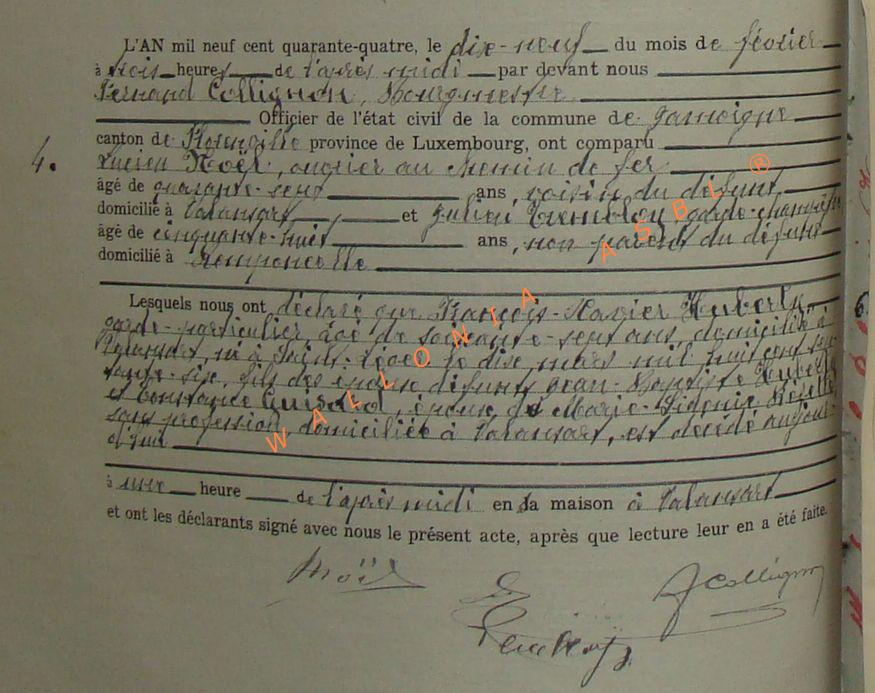 L'AN mil neuf cent quarante-quatre, le dix-neuf du mois de février
à trois heures de l'après midi par devant nous
Fernand Collignon, Bourgmestre
Officier de l'état civil de la commune de Jamoigne
4. canton de Florenville province de Luxembourg, ont comparu
Lucien Noël, ouvrier au chemin de fer
âgé de quarante-sept ans, voisin du défunt,
domicilié à Valansart et Julien garde-champêtre
âgé de cinquante-huit ans, non parent du défunt
domicilié à Romponcelle
Lesquels nous ont déclaré que François-Xavier Hubert
garde-particulier, âgé de soixante-sept ans, domicilié à
Valansart, né à Saint-Léger le dix mars mil huit cent sep
tante-six, fils des époux défunts Jean-Baptiste Hubert
et Constance Guisard, époux de Marie-Sidonie
sans profession, domiciliée à Valansart, est décédé aujour
d'hui
à une heure de l'après midi en sa maison à Valansart
et ont les déclarants signé avec nous le présent acte, après que lecture leur en a été faite.
Noël
FCollignon
WALLONIA ASBL ®